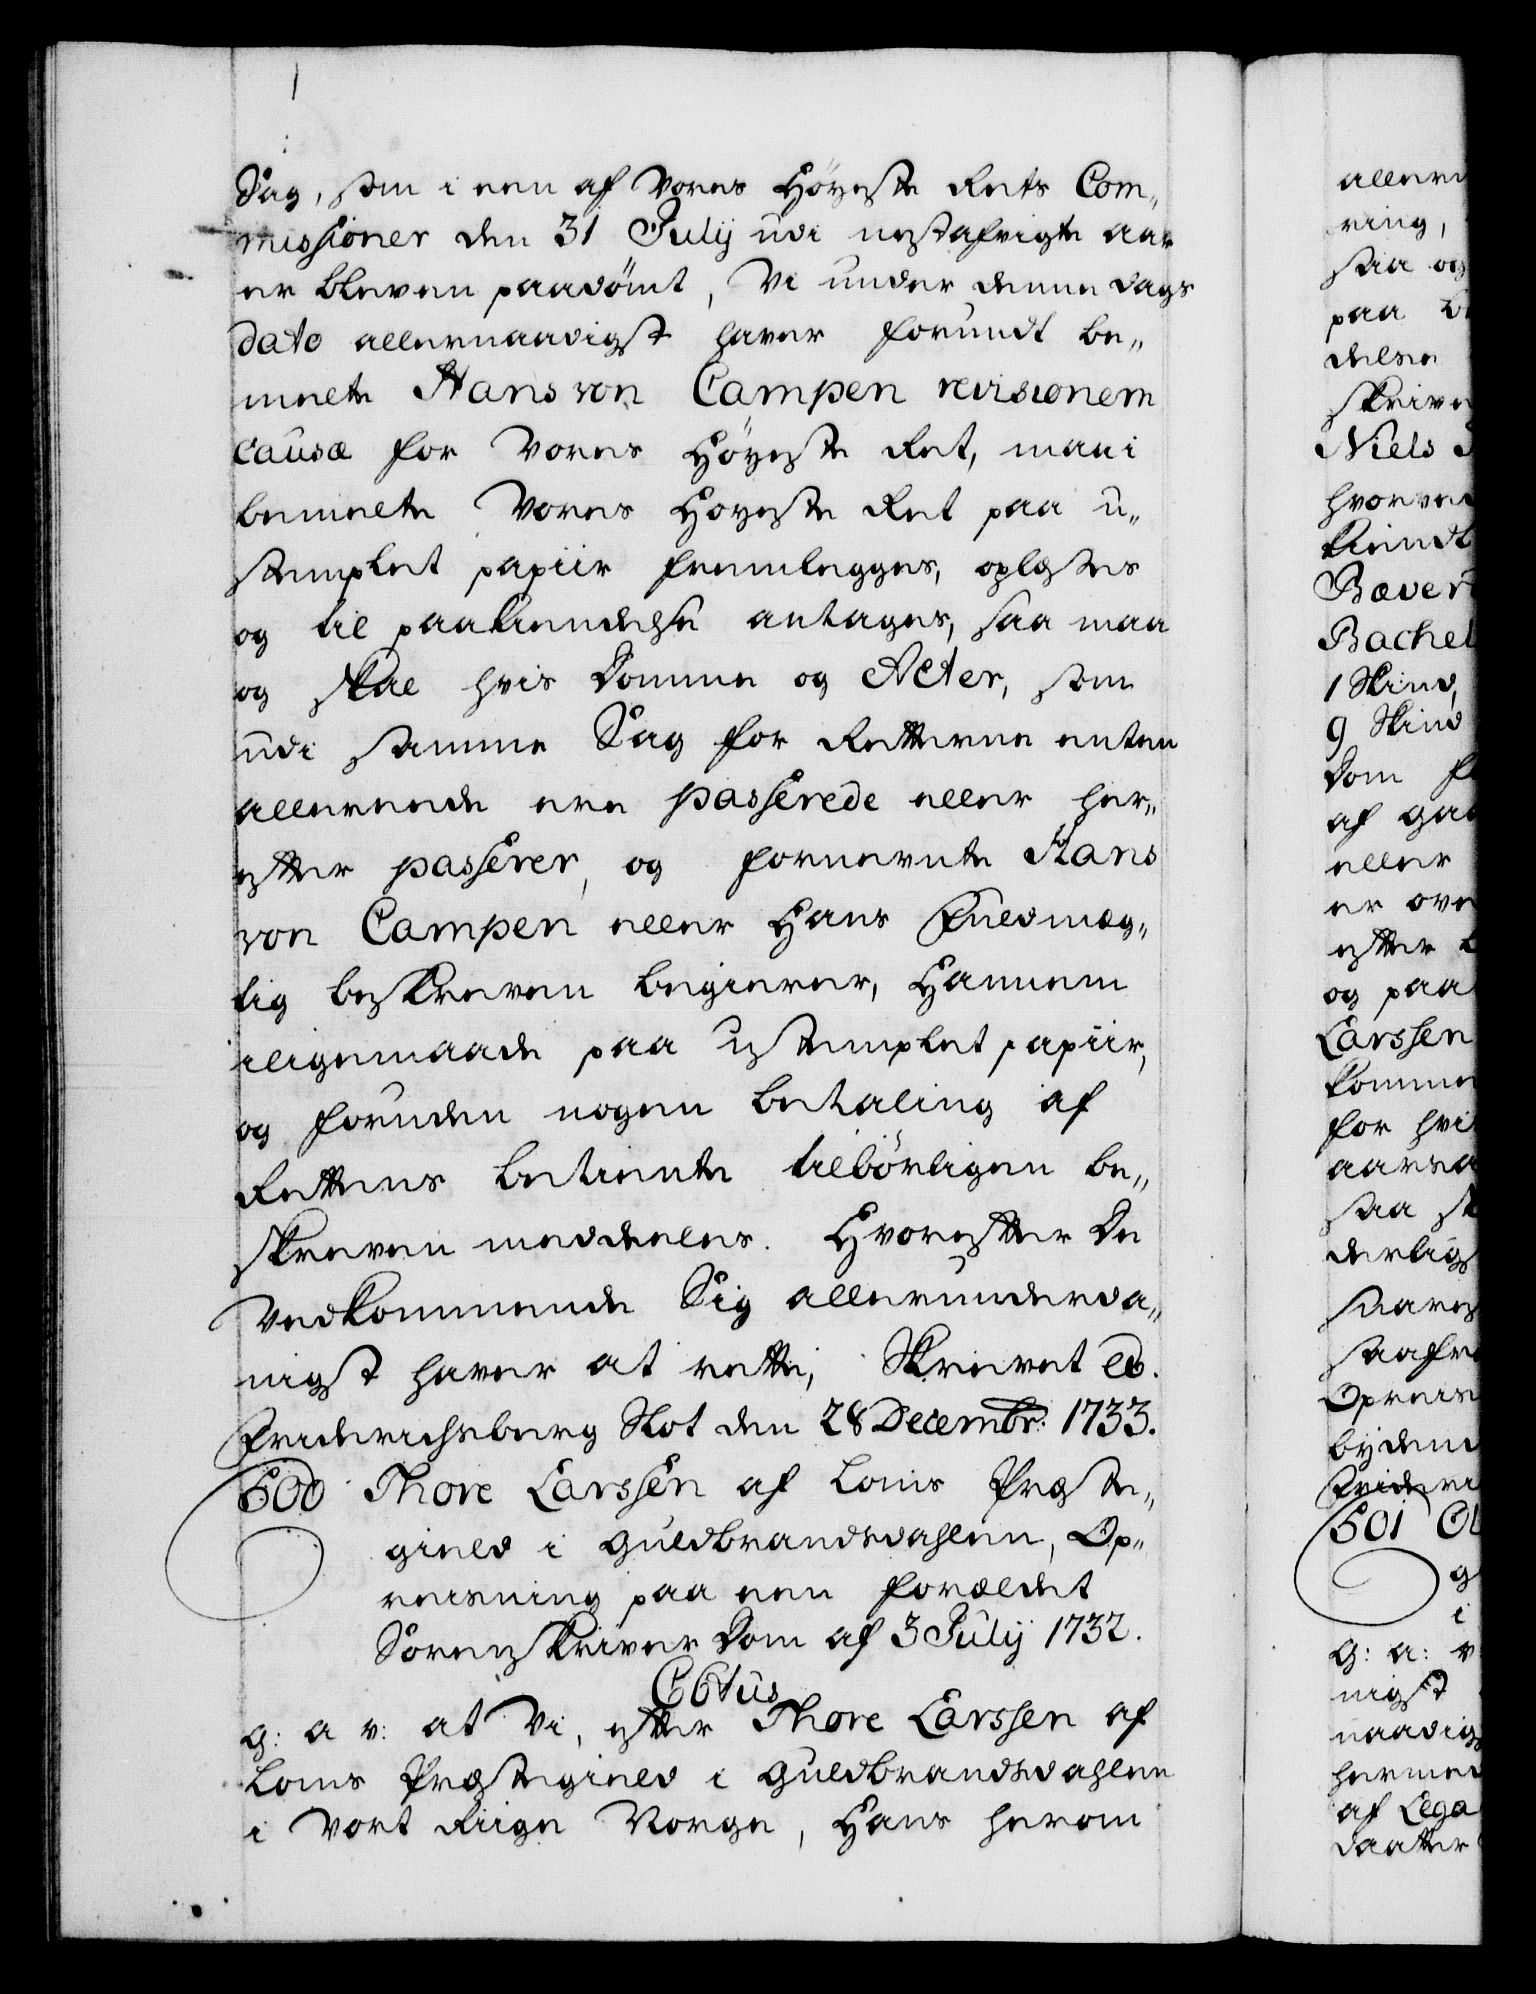 Sag, som i een af Vores Höyeste Rets Com„
missioner den 31 Julij udi nestafvigte aar
er bleven paadömt, Vi under denne dags
dato allernaadigst haver forundt be„
meelte Hans von Campen revisionem
causæ for Vores Höyeste Ret, maa i
bemeelte Vores Höyeste Ret paa u„
stemplet papiir fremlegges, oplæses
og til paakiendelse antages, saa maa
og skal hvis Domme og Acter, som
udi samme Sag for Retterne enten
allereede ere passerede eller her„
effter passerer, og fornevnte Hans
von Campen eller Hans Fuldmæg„
tig beskreven begierer, Hannem
iligemaade paa ustemplet papiir,
og foruden nogen betaling af
Rettens betiente tilbörligen be„
skreven meddeeles. Hvoreffter De
Vedkommende Sig allerunderda„
nigst haver at rette, Skrevet etc.
Friderichsberg Slot den 28 Decembr: 1733.
500 Thore Larssen af Loms Præste„
gield i Guldbrandsdahlen, Op„
reisning paa een forældet
Sorenskriver Dom af 3 Julij 1732.
C 6tus
G: a v: at Vi, effter Thore Larssen af
Loms Præstegield i Guldbrandsdahlen
i Vort Riige Norge, Hans herom
allern
ring,
saa og
paa
deelse
skrive
Niels
hvorved
kiendt
Bæver
Bachel
1 Skind,
9 Skind
Dom
af
eller
er ove
effter
og paa
Larssen
komme
for hvi
aarsa
saa
derligs
saafre
Opreis
byden
Frideri
501
i
G: a: v
nigst
naadigs
hermed
af Lega
daatter